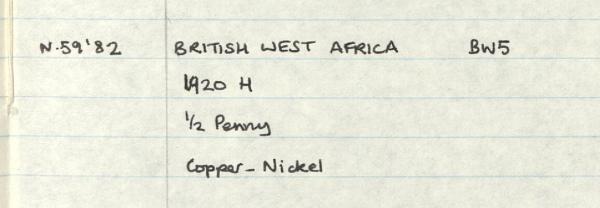 N.59'82 BRITISH WEST AFRICA BW5
1920 H
1/2 Penny
Copper-Nickel